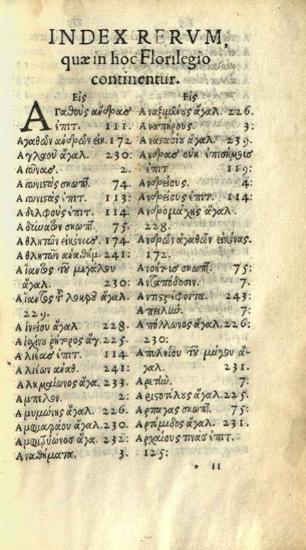 INDEX RERVM,
quæ in hoc Florilegio
continentur.
Εἰς
Ἀγαθοὺς ἄνδρας
ἐπιτ. 111.
Ἀγαθῶν ἀνδρῶν εἰκ. 172
Ἀγλαοῦ ἄγαλ. 230:
Ἀγῶνας. 2.
Ἀγωνιστὰς σκωπτ. 74.
Ἀγωνιστὰς ἐπιτ. 113:
Ἀδελφοὺς ἐπιτ. 114:
σκωπτ. 75:
Ἀθλητῶν εἰκόνας. 174.
Ἀθλητῶν ἀναθήμ. 241:
Αἴαντος τοῦ μεγάλου
ἄγαλ. 230:
Αἴαντος τοῦ Λοκροῦ ἄγαλ.
229.
Αἰνείου ἄγαλ. 228.
Αἰσχίνου ῥήτορος ἄγ. 225:
Ἁλιέας ἐπιτ. 114:
Ἁλιέων ἀναθ. 241:
Ἀλκμαίωνος ἄγα. 233.
Ἄμπελον. 2.
Ἀμυμώνης ἄγαλ. 226:
ἄγαλ. 230:
ἄγα. 232:
Ἀναθήματα. 3.
Εἰς
Ἀναξιμένους ἄγαλ. 226.
Ἀναπήρους. 3:
Ἀναστασίου ἄγαλ. 239.
Ἄνδρας οὐκ ἐπισήμους
ἐπιτ. 119:
Ἀνδρείους. 4:
Ἀνδρείους ἐπιτ. 114:
Ἀνδρομάχης ἄγαλ.
228.
Ἀνδρῶν ἀγαθῶν εἰκόνας.
172.
Ἀνοήτους σκωπτ. 75:
Ἀνταπόδοσιν. 7:
Ἀντιστρέφοντα. 243:
Ἀπειλάς. 7:
Ἀπόλλωνος ἄγαλ. 226:
230:
Ἀπυληίου τοῦ μάγου ἄγαλ.
231.
Ἀρετάς. 7:
Ἀριστοτέλους ἄγαλ. 225.
Ἅρπαγας σκωπτ. 75:
Ἀρτέμιδος ἄγαλ. 231.
Ἀρχαίους τινὰς ἐπιτ.
125:
* II